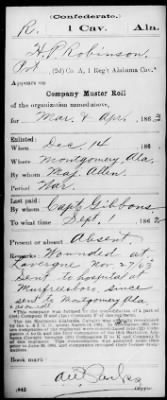 (Confederate.)
R. 1 Cav. Ala.
H. P. Robinson
Pvt, (2d) Co. A, 1 Reg't Alabama Cav.*
Appears on
Company Muster Roll
of the organization named above,
for Mar & Apr, 1863
Enlisted:
When Dec. 14, 186
Where Montgomery Ala.
By whom Maj. Allen
Period War
Last paid:
By whom Capt. Gibbons
To what time Sept. 1, 1862
Present or absent Absent
Remarks: Wounded at
Lavergne Nov 27/62
Sent to hospital at
Murfreesboro, since
sent to Montgomery Ala
Book mark:
(642) Copyist.